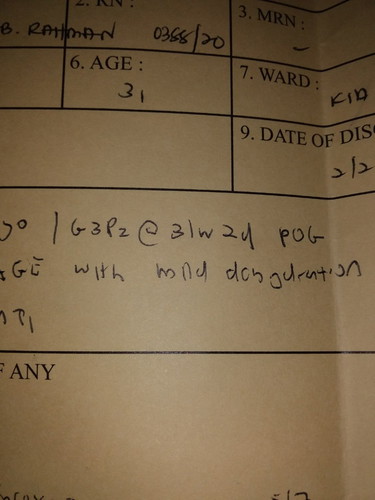 2. RN :
3. MRN :
B. RAHMAN 0355/20
6. AGE :
7. WARD :
31
KID
9. DATE OF DISC
2/2
yo / G3P2 @ 31w 2d POG
AGE with mild dehydration
F ANY